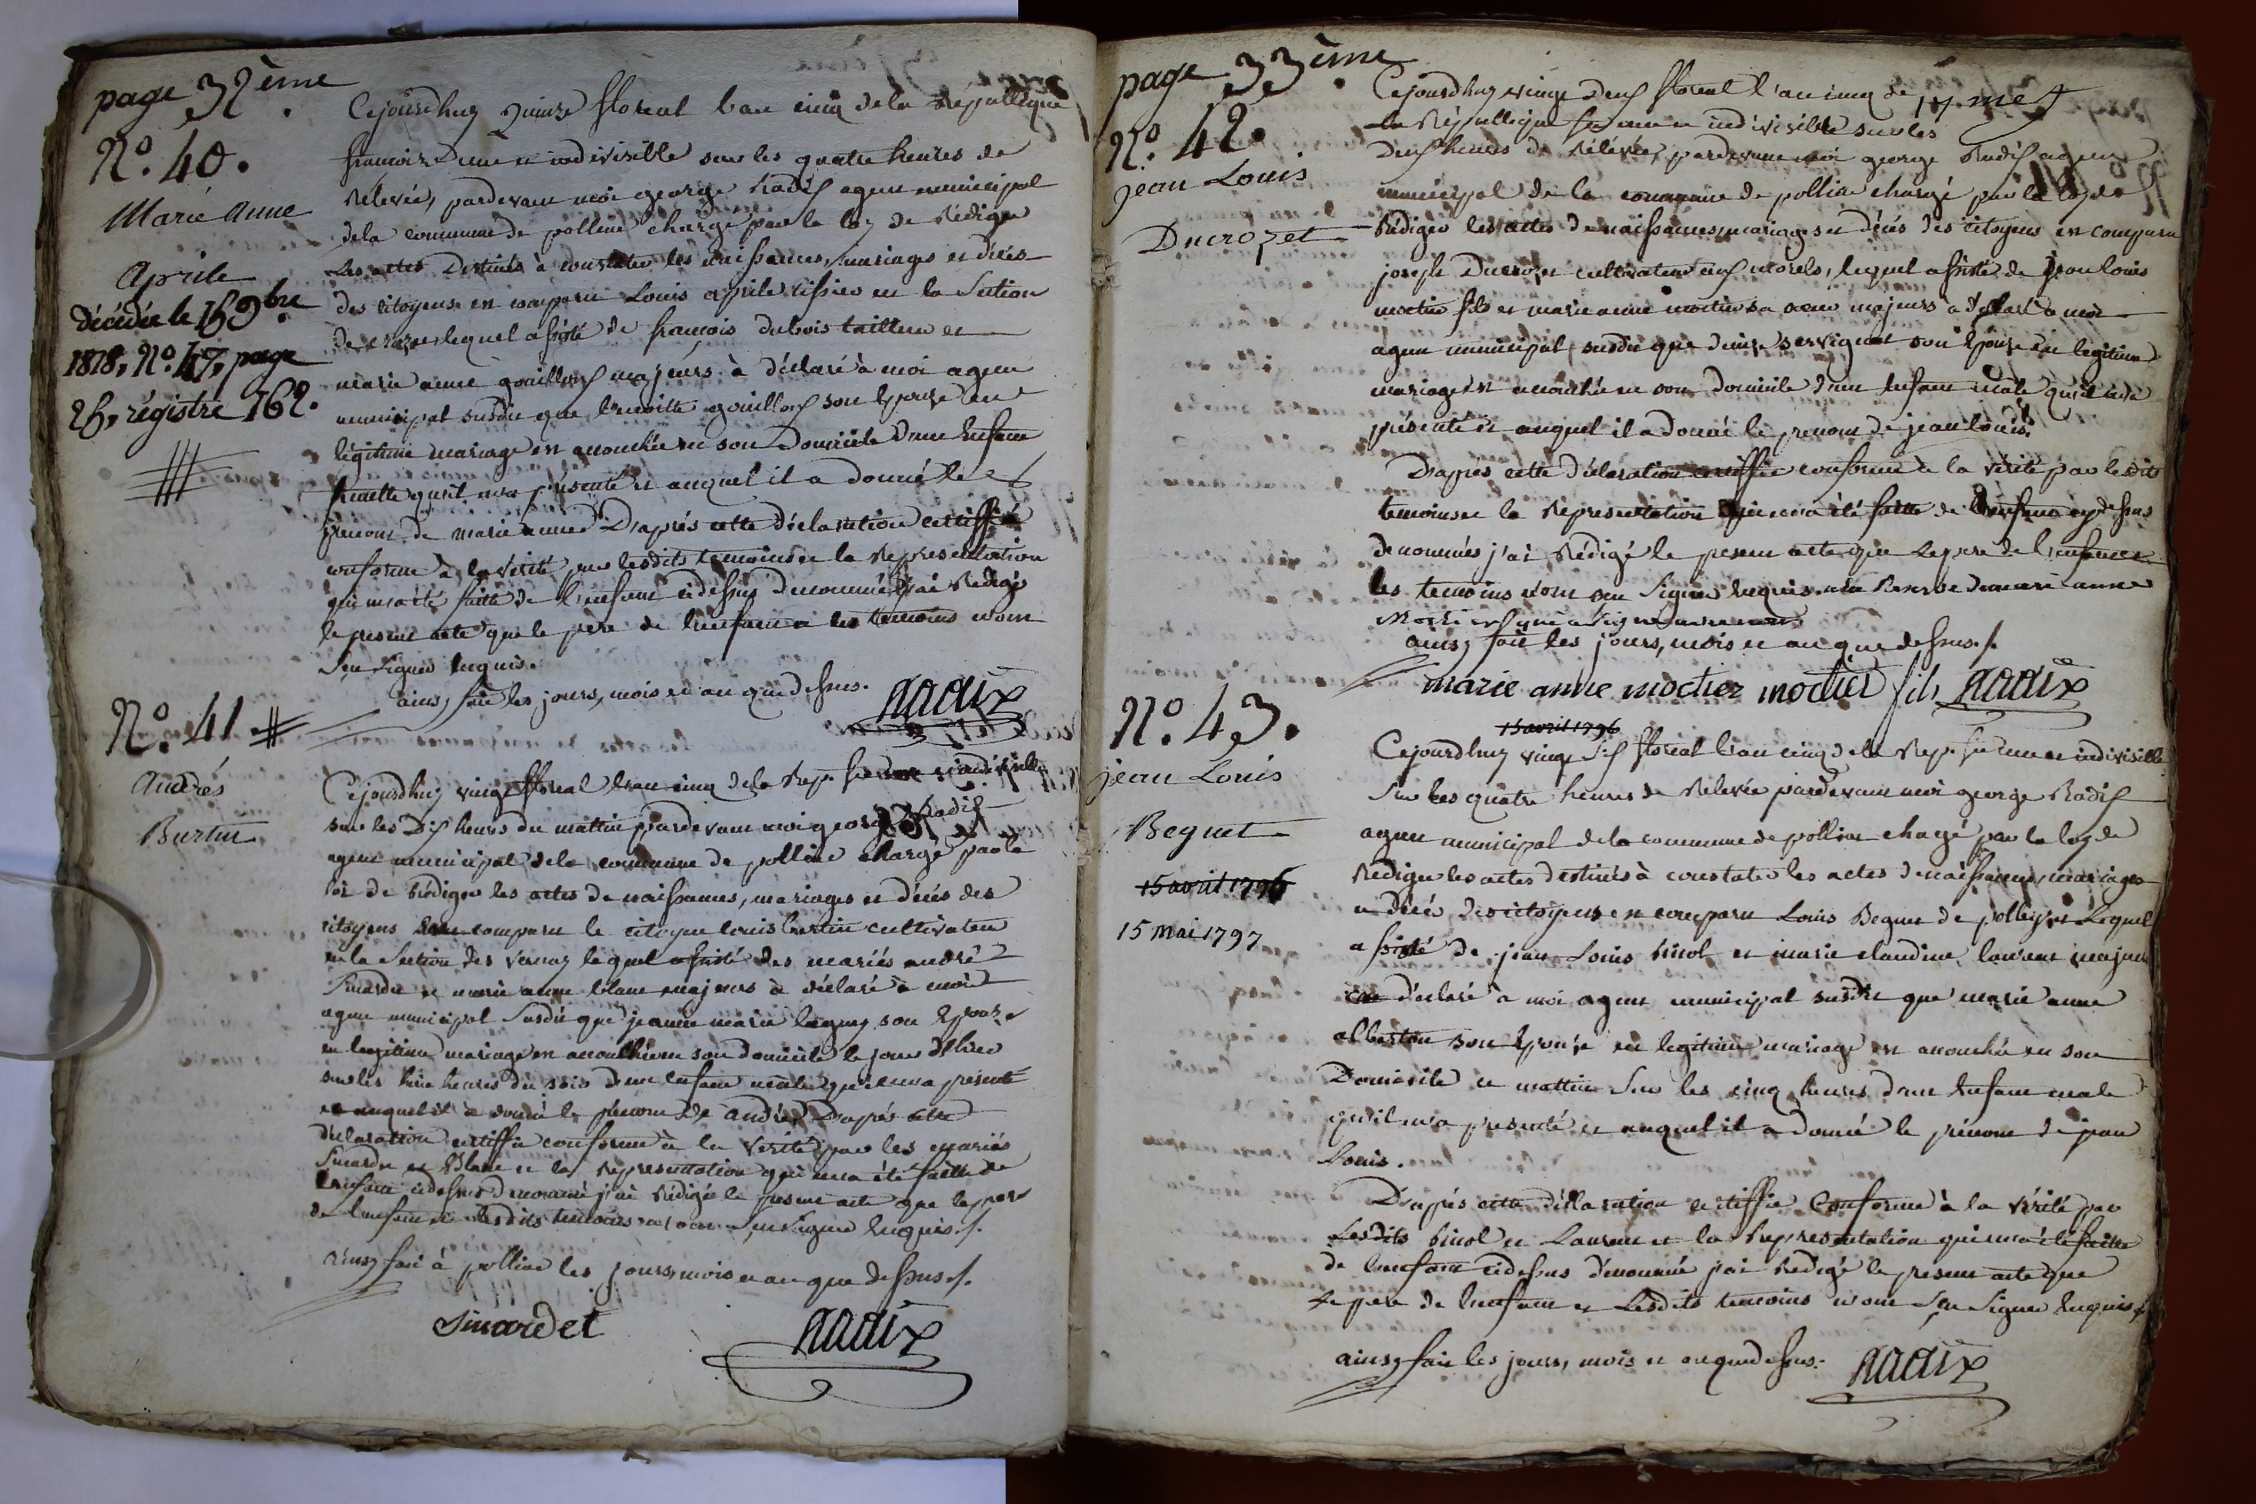 page 32ème
N.° 40.
Marie anne
Aprile
décédée le 15 9bre
1818, N.° 47, page
25, régistre 162.
Cejourdhuy quinze floreal l'an cinq de la République
francoise une et indivisible sur les quatre heures de
Relevée, pardevant moi george Radix agent municipal
de la commune de polliat chargé par la loy de Rédiger
Les actes Destinés à constater les naissances, mariages et décés
des citoyens est comparu Louis aprile tissier en la Section
de lequel assisté de francois dubois tailleur et
marie anne gouilloux majeurs à déclaré à moi agent
municipal susdit que benoitte gouilloux son Epouse en
légitime mariage est accouchée en son Domicile d'une Enfant
femelle qu'il m'a présenté et auquel il a donné le
prénom de marie anne D'après cette déclaration certiffié
conforme à la vérité par lesdits temoins et la Representation
qui m'a été faitte de l'enfant cidessus denommé j'ai Redigé
le present acte que le pere de l'enfant et les temoins n'ont
Sçu signer Enquis.
ainsy fait les jours, mois et an que dessus.
Radix
N.° 41
Andrés
Burtin
Cejourdhuy vingt floreal l'an cinq de la Rep. fse une et indivisible
sur les Dix heures du mattin pardevant moi george Radix
agent municipal de la commune de polliat chargé par la
loi de Rédiger les actes de naissances, mariages et décés des
citoyens est comparu le citoyen louis burtin cultivateur
en la Section des vernay lequel assisté des mariés andré
Sinardet et marie anne blanc majeurs à déclaré à moi
agent municipal Susdit que jeanne marie laguy son Epouze
en legitime mariage est accouchée en son domicile le jour d'hier
sur les huit heures du soir d'une Enfant mâle qu'il m'a présenté
et auquel il a donné le prénom de andré, D'après cette
déclaration certiffié conforme à la vérité par les mariés
Sinardet et Blanc et la Representation qui m'a été faitte de
l'enfant cidessus denommé j'ai Rédigé le present acte que le pere
de l'enfant et lesdits temoins n'ont Sçu Signer Enquis ./.
ainsy fait à polliat les jours, mois et an que dessus ./.
Sinardet Radix
page 33ème
N.° 42.
jean Louis
Ducrozet
Cejourdhuy vingt deux floreal l'an cinq de
la République fse une et indivisible sur les
Deux heures de Relevée, pardevant moi george Radix agent
municipal de la commune de polliat chargé par la loy de
Rédiger les actes de naissances, mariages et décés des citoyens est comparu
joseph Ducrozet cultivateur aux morels, lequel assisté de jean louis
moctier fils et marie anne moctier sa soeur majeurs à déclaré à moi
agent municipal susdit que denise servignat son Epouse en legitime
mariage est accouchée en son domicile d'une Enfant male qu'il m'a
présenté et auquel il a donné le prenom de jean louis.
D'apres cette déclaration certiffié conforme à la vérité par lesdits
temoins et la Representation qui m'a été faitte de l'enfant cy dessus
denommés j'ai Rédigé le present acte que le pere de l'enfant et
les temoins n'ont sçu Signer Enquis a la Reserve de marie anne
ainsy fait les jours, mois et an que dessus ./.
marie anne moctier moctier fils Radix
N.° 43.
jean Louis
Beguet
15 avril 1796
15 mai 1797
15 avril 1796
Cejourdhuy vingt six floreal l'an cinq de la Rep. fse une et indivisible
Sur les quatre heures de Relevée pardevant moi george Radix
agent municipal de la commune de polliat chagé par la loy de
Rediger les actes destinés à constater les actes de naissances, mariages
et décés des citoyens est comparu Louis Beguet de polliat Lequel
assisté de jean Louis binol et marie claudine laurent majeurs
à déclaré à moi agent municipal susdit que marie anne
alberton son Epouse en legitime mariage est accouchée en son
Domicile ce mattin Sur les cinq heures d'une Enfant male
qu'il m'a presenté et auquel il a donné le prénom de jean
Louis.
D'après cette déclaration certiffié Conforme à la Vérité par
Lesdits binol et Laurent et la Representation qui m'a été faitte
de l'enfant cidessus dénommé j'ai Redigé le present acte que
Le pere de l'enfant et Lesdits temoins n'ont Sçu Signer Enquis
ainsy fait les jours, mois et an que dessus.
Radix